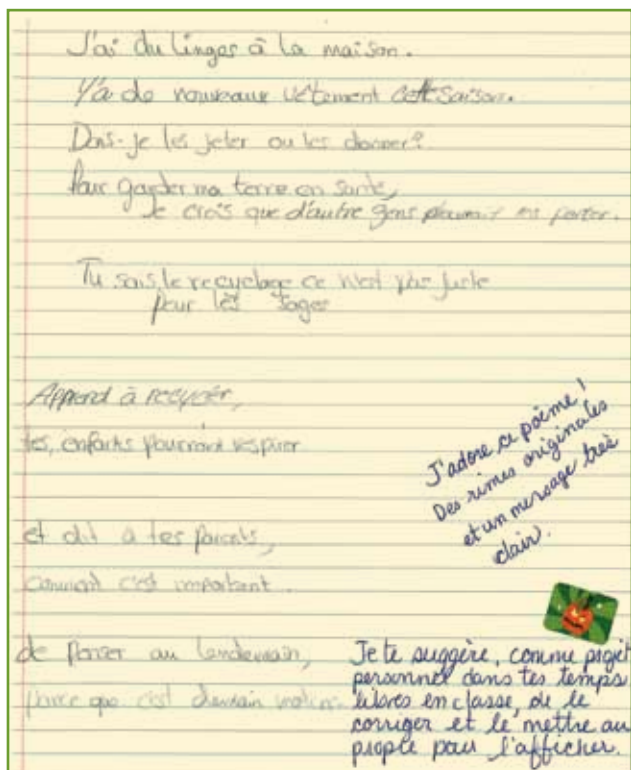 J'ai du linges à la maison.
Y'a de nouveaux vêtement cett saison.
Dois-je les jeter ou les donner?
Pour garder ma terre en santé,
Je crois que d'autre gens pourrait les porter.
Tu sais le recyclage ce n'est pas juste
pour les sages
Apprend à recycler,
tes enfants pourront respirer
et dit à tes parents,
comment c'est important.
de penser au lendemain,
parce que c'est demain matin.
J'adore ce poème!
Des rimes originales
et un message très
clair.
Je te suggère, comme projet
personnel dans tes temps
libres en classe, de le
corriger et le mettre au
propre pour l'afficher.